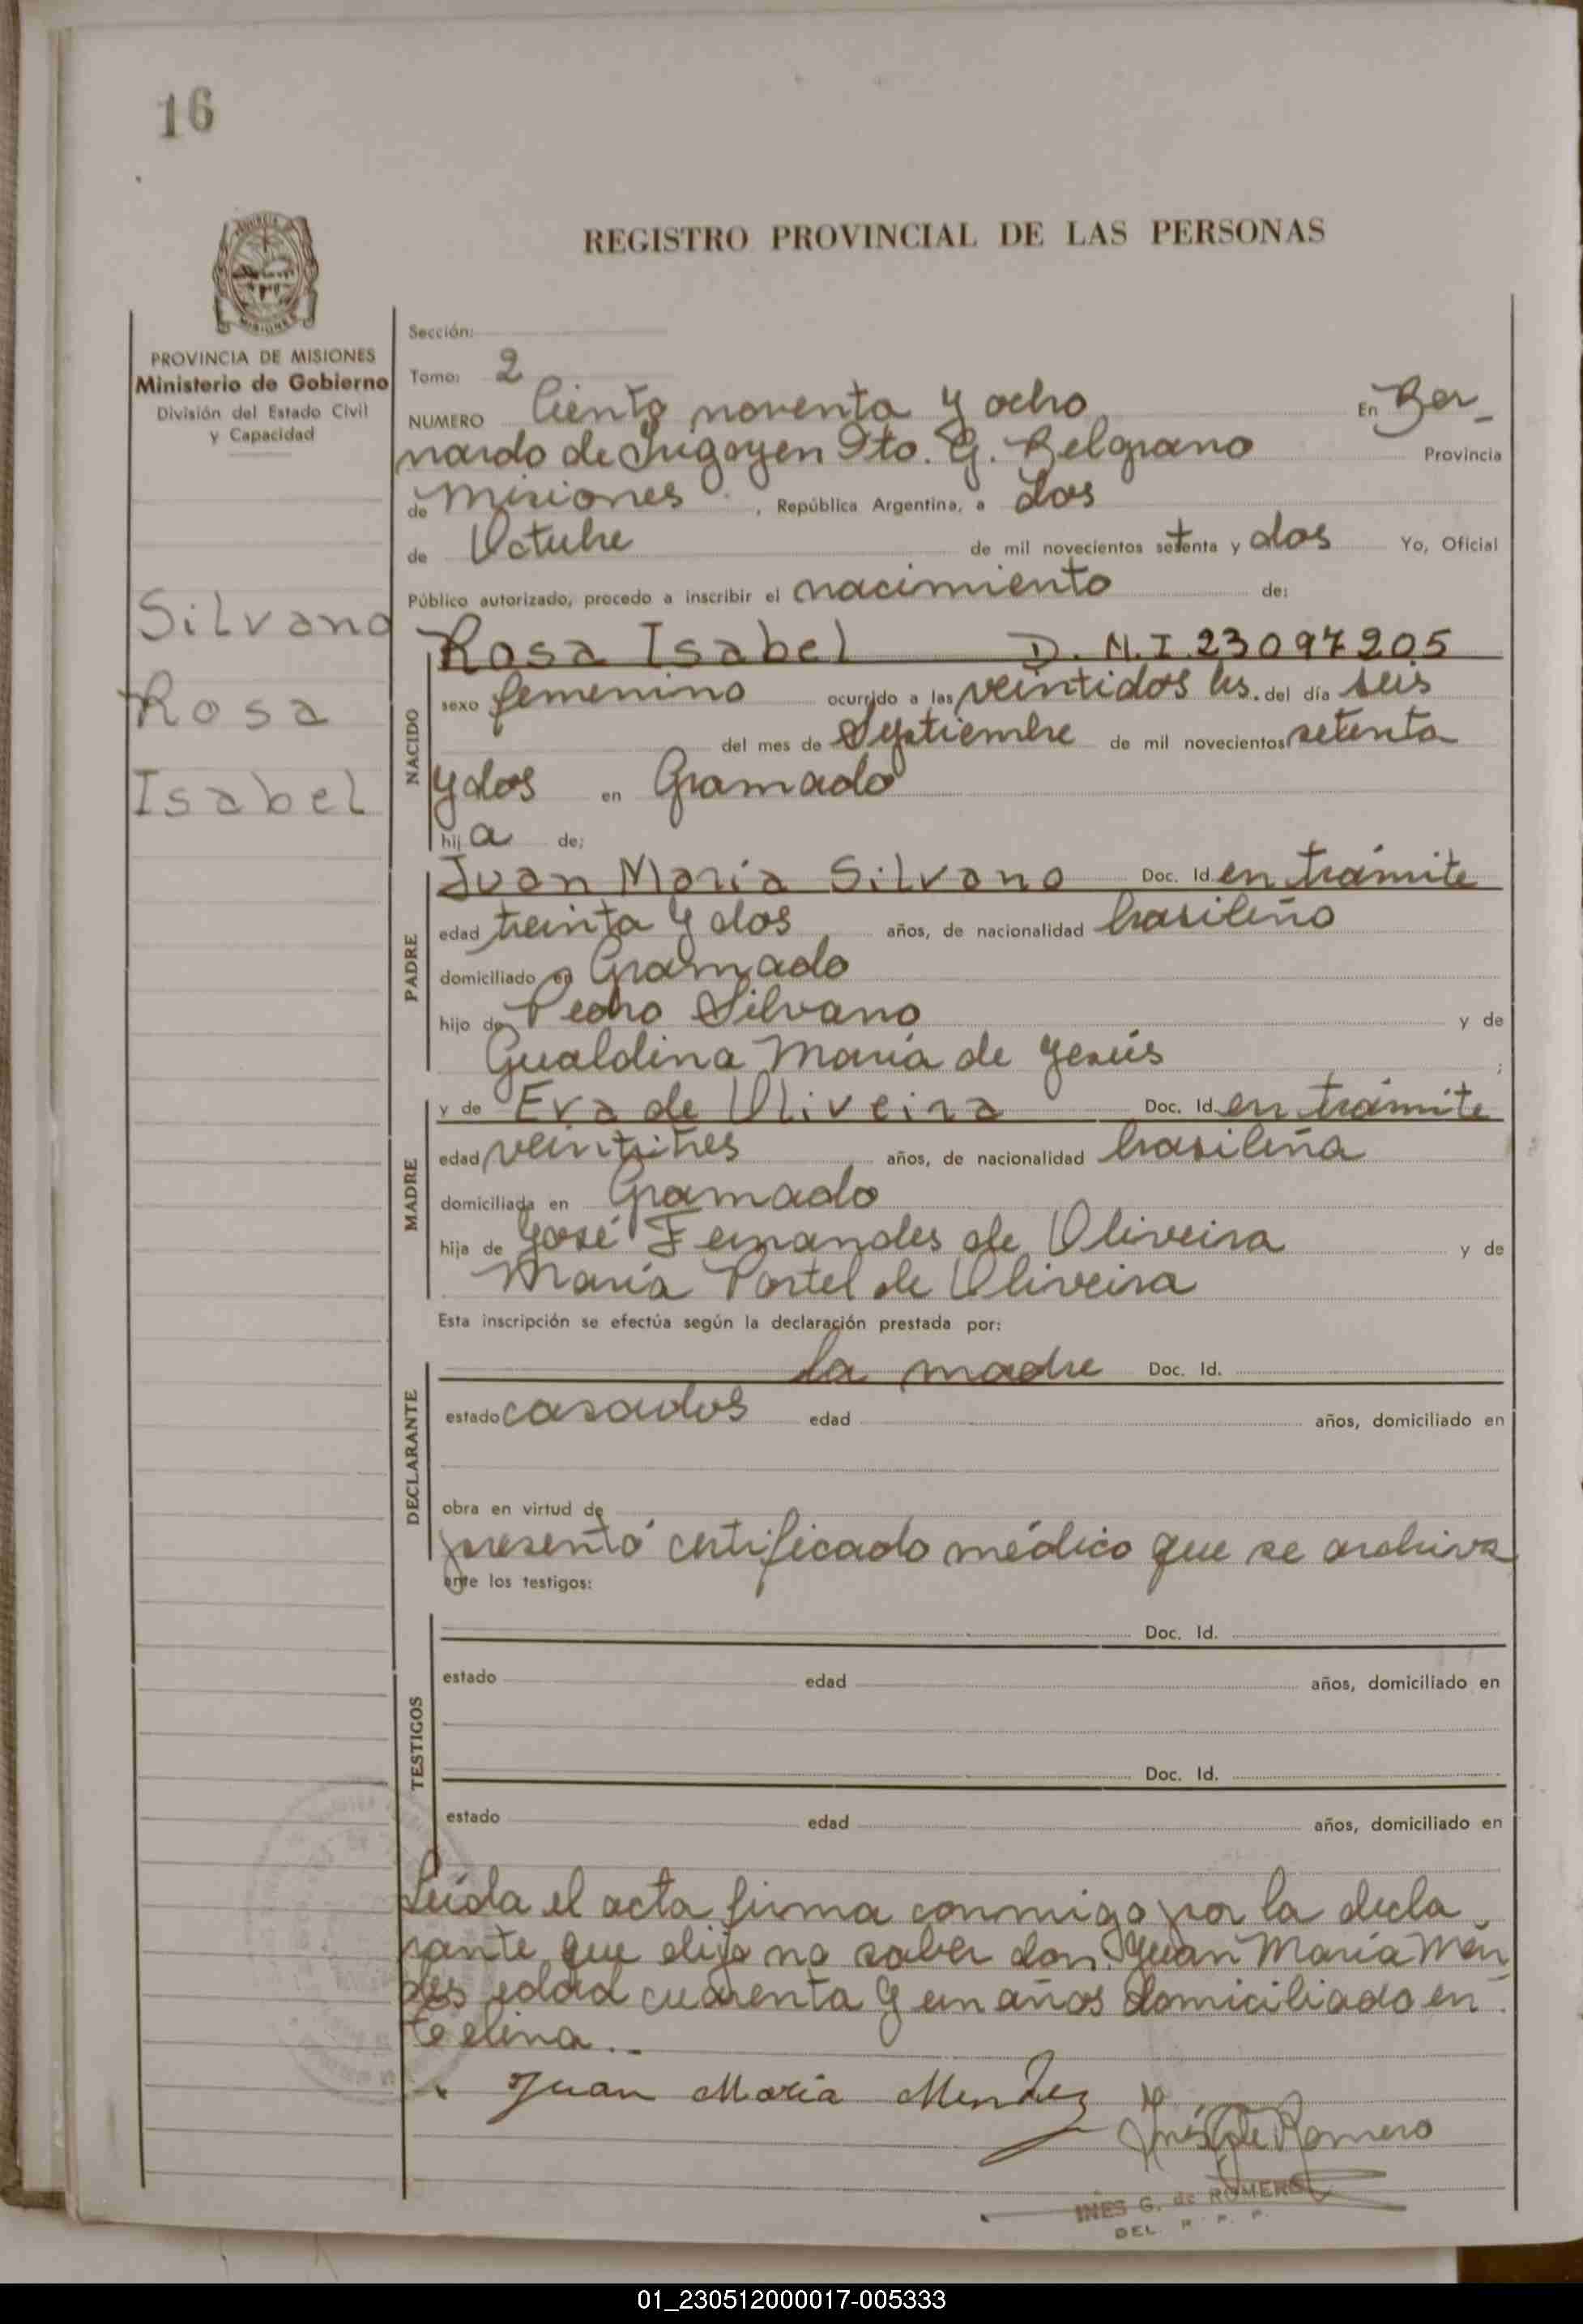 16
REGISTRO PROVINCIAL DE LAS PERSONAS
PROVINCIA DE MISIONES
Ministerio de Gobierno
División del Estado Civil
y Capacidad
Silvano
Rosa
Isabel
Sección:
Tomo: 2
NUMERO Ciento noventa y ocho En Ber-
nardo de Irigoyen Dto. G. Belgrano Provincia
de Misiones, República Argentina, a dos
de Octubre de mil novecientos setenta y dos Yo, Oficial
Público autorizado, procedo a inscribir el nacimiento de:
NACIDO
Rosa Isabel D.N.I. 23097205
sexo femenino ocurrido a las veintidos hs. del día seis
del mes de Septiembre de mil novecientos setenta
y dos en Gramado
hija de:
PADRE
Juan María Silvano Doc. Id. en trámite
edad treinta y dos años, de nacionalidad brasileño
domiciliado en Gramado
hijo de Pedro Silvano y de
Gualdina María de Jesús ;
MADRE
y de Eva de Oliveira Doc. Id. en trámite
edad veintitres años, de nacionalidad brasileña
domiciliada en Gramado
hija de José Fernandes de Oliveira y de
María Portel de Oliveira
Esta inscripción se efectúa según la declaración prestada por:
DECLARANTE
la madre Doc. Id.
estado casados edad años, domiciliado en
obra en virtud de
presentó certificado médico que se archiva
ante los testigos:
TESTIGOS
Doc. Id.
estado edad años, domiciliado en
Doc. Id.
estado edad años, domiciliado en
Leída el acta firma conmigo por la decla
rante que dijo no saber don Juan María Mén
des edad cuarenta y un años domiciliado en
Juan María Mendez
Inés G. de Romero
INES G. de ROMERO
DEL. R. P. P.
01_230512000017-005333